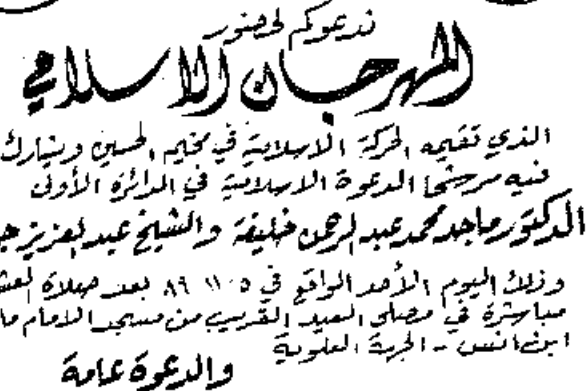 ندعوكم لحضور
المهرجان الاسلامي
الذي تقيمه الحركة الاسلامية في مخيم الحسين ويشارك
فيه مرشحا الدعوة الاسلامية في الدائرة الأولى
الدكتور ماجد محمد عبد الرحمن خليفة والشيخ عبد العزيز
وذلك اليوم الأحد الواقع في ٥ ١١ ٨٩ بعد صلاة
مباشرة في مصلى العيد القريب من مسجد الامام
ابن انس - الجهة العلوية
والدعوة عامة